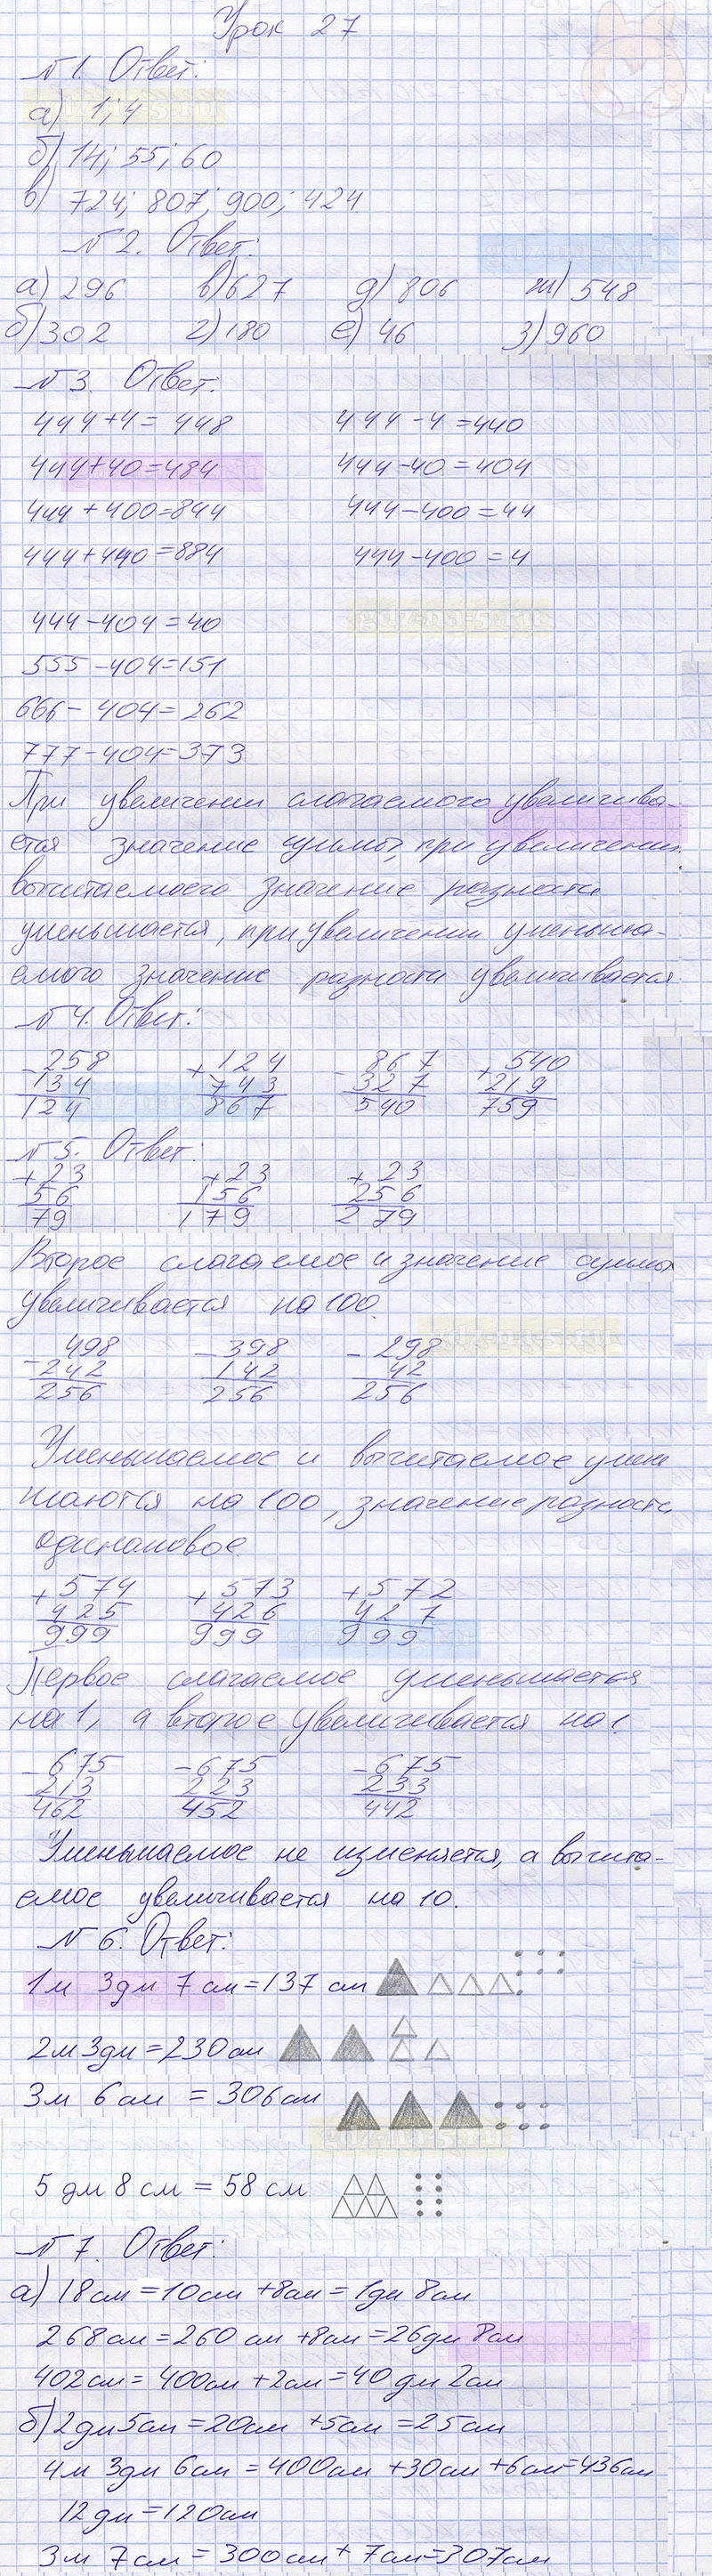 Урок 27
№ 1. Ответ:
а) 1; 4
б) 14; 55; 60
в) 724; 807; 900; 424
№ 2. Ответ:
а) 296 в) 627 д) 806 ж) 548
б) 302 г) 180 е) 46 з) 960
№ 3. Ответ.
444+4= 448 444-4=440
444+40=484 444-40=404
444+400=844 444-400=44
444+440=884 444-400=4
444-404=40
555-404=151
666-404=262
777-404=373
При увеличении слагаемого увеличива-
ется значение суммы, при увеличении
вычитаемоего значение разности
уменьшается, при увеличении уменьша-
емого значение разности увеличивается
№ 4. Ответ:
-258 +124 -867 +540
134 743 327 219
124 867 540 759
№ 5. Ответ:
+23 +23 +23
56 156 256
79 179 279
Второе слагаемое и значение суммы
увеличивается на 100.
-498 -398 -298
242 142 42
256 256 256
Уменьшаемое и вычитаемое умень
шаются на 100, значение разности
одинаковое.
+574 +573 +572
425 426 427
999 999 999
Первое слагаемое уменьшается
на 1, а второе увеличивается на 1.
-675 -675 -675
213 223 233
462 452 442
Уменьшаемое не изменяется, а вычита-
емое увеличивается на 10.
№ 6. Ответ:
1м 3дм 7 см =137 см
2м 3дм =230см
3м 6см = 306см
5 дм 8 см = 58 см
№ 7. Ответ:
а) 18см =10см +8см = 1дм 8см
268см=260 см +8см =26дм 8см
402см= 400см +2см =40 дм 2см
б) 2дм 5см =20см +5см =25см
4м 3дм 6см =400см +30см +6см=436см
12дм =120см
3м 7см = 300см+ 7см=307см